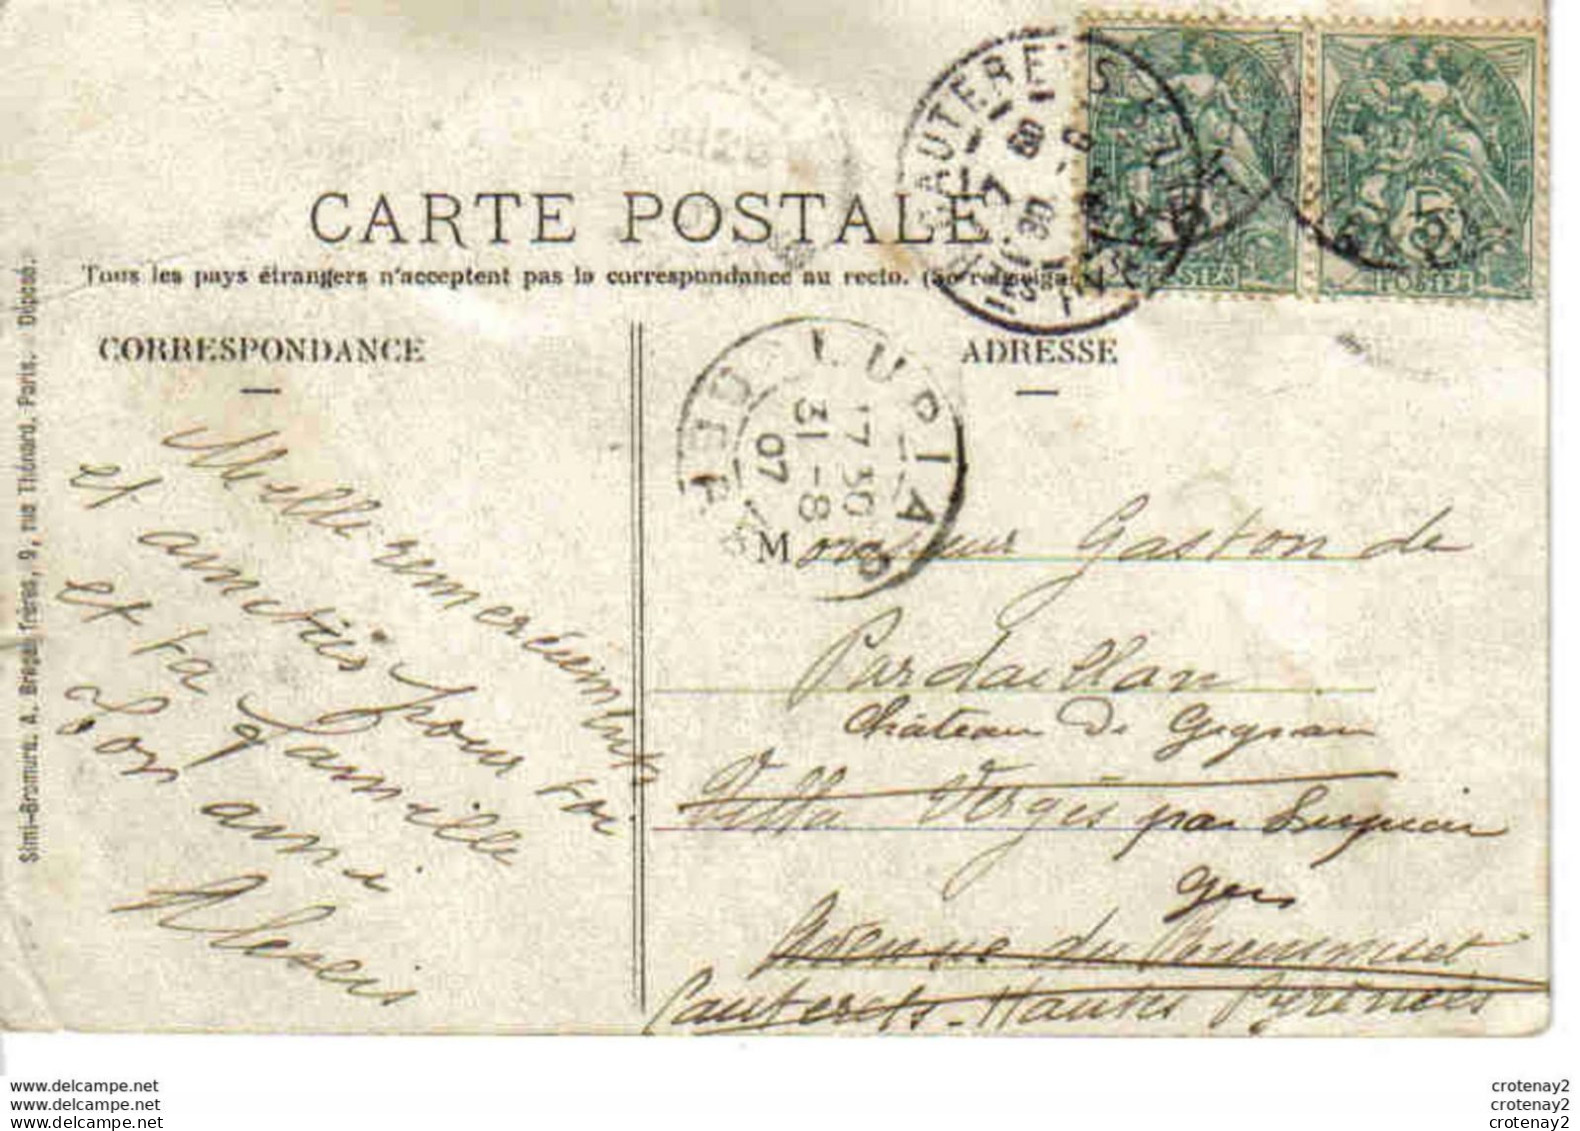 CARTE POSTALE
Tous les pays étrangers n'acceptent pas la correspondance au recto. (Se renseigner
CORRESPONDANCE
ADRESSE
Simi-Bromure. A. Breger frères, 9, rue Thénard, Paris. Déposé.
CAUTERETS
LUPIAC
GERS
17 30
31-8
07
5
POSTES
POSTES
Mille remerciements
et amitiés pour toi
et ta famille
Ton ami
Alexis
Monsieur Gaston de
Pardaillan
Château de
Villa Verges par
Gers
Avenue du
Cauterets - Hautes Pyrénées
www.delcampe.net
www.delcampe.net
www.delcampe.net
crotenay2
crotenay2
crotenay2